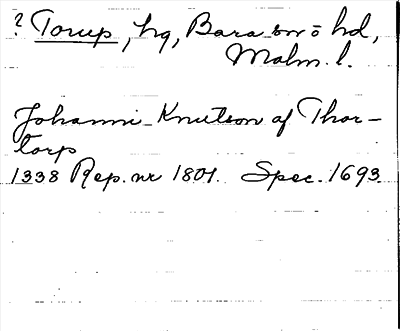 ? Torup, hg, Bara sn o hd,
Malm. l.
Johanni Knutson af Thor-
torp
1338 Rep. nr 1801. Spec. 1693.